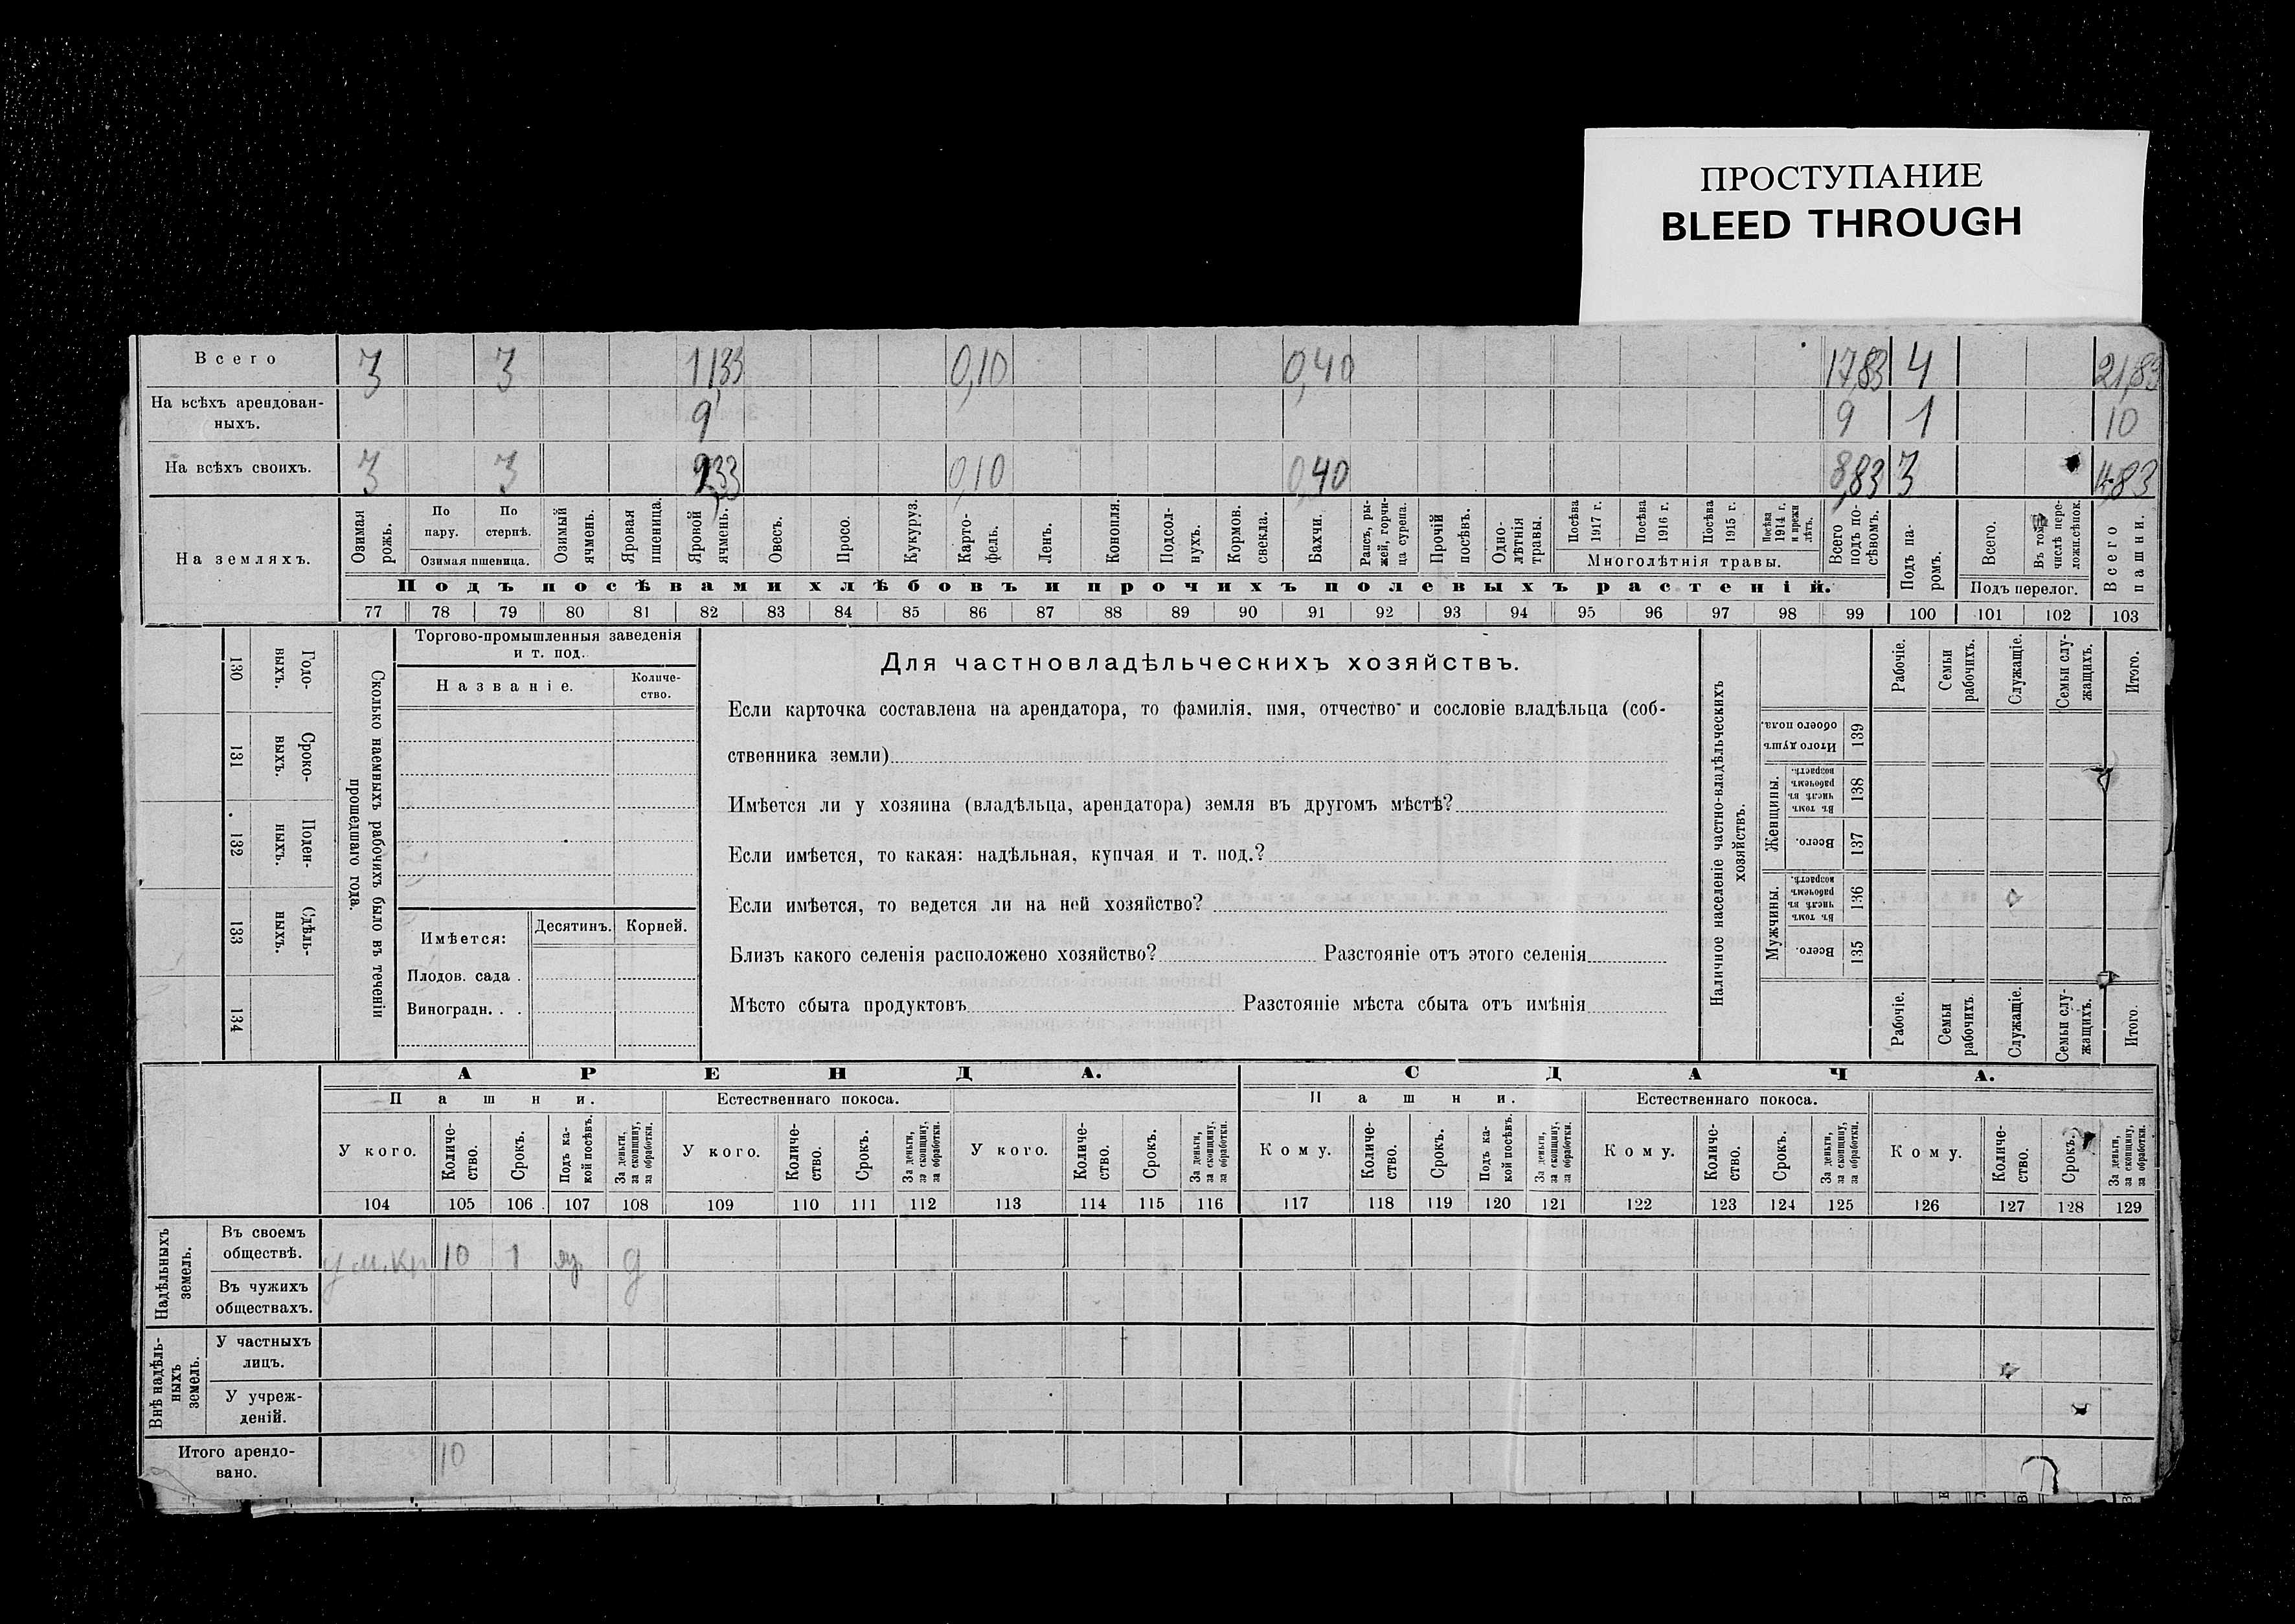 ПРОСТУПАНИЕ
BLEED THROUGH
Всего 3 3 11,33 0,10 0,40 17,83 4 21,83
На всѣхъ арендован-
ныхъ. 9 9 1 10
На всѣхъ своихъ. 3 3 0,10 0,40 8,83 3
На земляхъ.
Озимая рожь.
По пару.
По стернѣ.
Озимая пшеница.
Озимый ячмень.
Яровая пшеница.
Яровой ячмень.
Овесъ.
Просо.
Кукуруз.
Карто-
фель.
Ленъ.
Конопля.
Подсол-
нухъ.
Кормов.
свекла.
Бахчи.
Рапсъ, ры-
жей, горчи-
ца сурепа.
Прочій
посѣвъ.
Одно-
лѣтнія
травы.
Посѣва
1917 г.
Посѣва
1916 г.
Посѣва
1915 г.
Посѣва
1914 г.
и прежн
лѣтъ.
Многолѣтнія травы.
Всего
подъ по-
сѣвомъ.
Подъ па-
ромъ.
Всего.
Въ томъ
числѣ пере-
ложн.сѣнок.
Подъ перелог.
Всего
пашни.
Подъ посѣвами хлѣбовъ и прочихъ полевыхъ растеній.
77 78 79 80 81 82 83 84 85 86 87 88 89 90 91 92 93 94 95 96 97 98 99 100 101 102 103
130 Годо-
выхъ.
131 Сроко-
выхъ.
132 Поден-
ныхъ.
133 Сдѣль-
ныхъ.
134
Сколько наемныхъ рабочихъ было въ теченіи
прошедшаго года.
Торгово-промышленныя заведенія
и т. под.
Названіе.
Количе-
ство.
Имѣется:
Десятинъ.
Корней.
Плодов. сада .
Виноградн. . .
Для частновладѣльческихъ хозяйствъ.
Если карточка составлена на арендатора, то фамилія, имя, отчество и сословіе владѣльца (соб-
ственника земли)
Имѣется ли у хозяина (владѣльца, арендатора) земля въ другомъ мѣстѣ?
Если имѣется, то какая: надѣльная, купчая и т. под.?
Если имѣется, то ведется ли на ней хозяйство?
Близъ какого селенія расположено хозяйство? Разстояніе отъ этого селенія
Мѣсто сбыта продуктовъ Разстояніе мѣста сбыта отъ имѣнія
Наличное населеніе частно-владѣльческихъ
хозяйствъ.
Рабочіе.
Семьи
рабочихъ.
Служащіе.
Семьи слу-
жащихъ.
Итого.
Итого душъ
обоего пола.
139
Женщины.
Въ томъ
числѣ въ
рабочемъ
возрастѣ.
138
Всего.
137
Мужчины.
Въ томъ
числѣ въ
рабочемъ
возрастѣ.
136
Всего.
135
Рабочіе.
Семьи
рабочихъ.
Служащіе.
Семьи слу-
жащихъ.
Итого.
АРЕНДА. СДАЧА.
Пашни. Естественнаго покоса. Пашни. Естественнаго покоса.
У кого.
Количе-
ство.
Срокъ.
Подъ ка-
кой посѣвъ.
За деньги,
за скопщину,
за обработки.
У кого.
Количе-
ство.
Срокъ.
За деньги,
за скопщину,
за обработки.
У кого.
Количе-
ство.
Срокъ.
За деньги,
за скопщину,
за обработки.
Кому.
Количе-
ство.
Срокъ.
Подъ ка-
кой посѣвъ.
За деньги,
за скопщину,
за обработки.
Кому.
Количе-
ство.
Срокъ.
За деньги,
за скопщину,
за обработки.
Кому.
Количе-
ство.
Срокъ.
За деньги,
за скопщину,
за обработки.
104 105 106 107 108 109 110 111 112 113 114 115 116 117 118 119 120 121 122 123 124 125 126 127 128 129
Надѣльныхъ
земель.
Въ своемъ
обществѣ. у м.кр 10 1 яч д
Въ чужихъ
обществахъ.
Внѣ надѣль-
ныхъ
земель.
У частныхъ
лицъ.
У учреж-
деній.
Итого арендо-
вано. 10